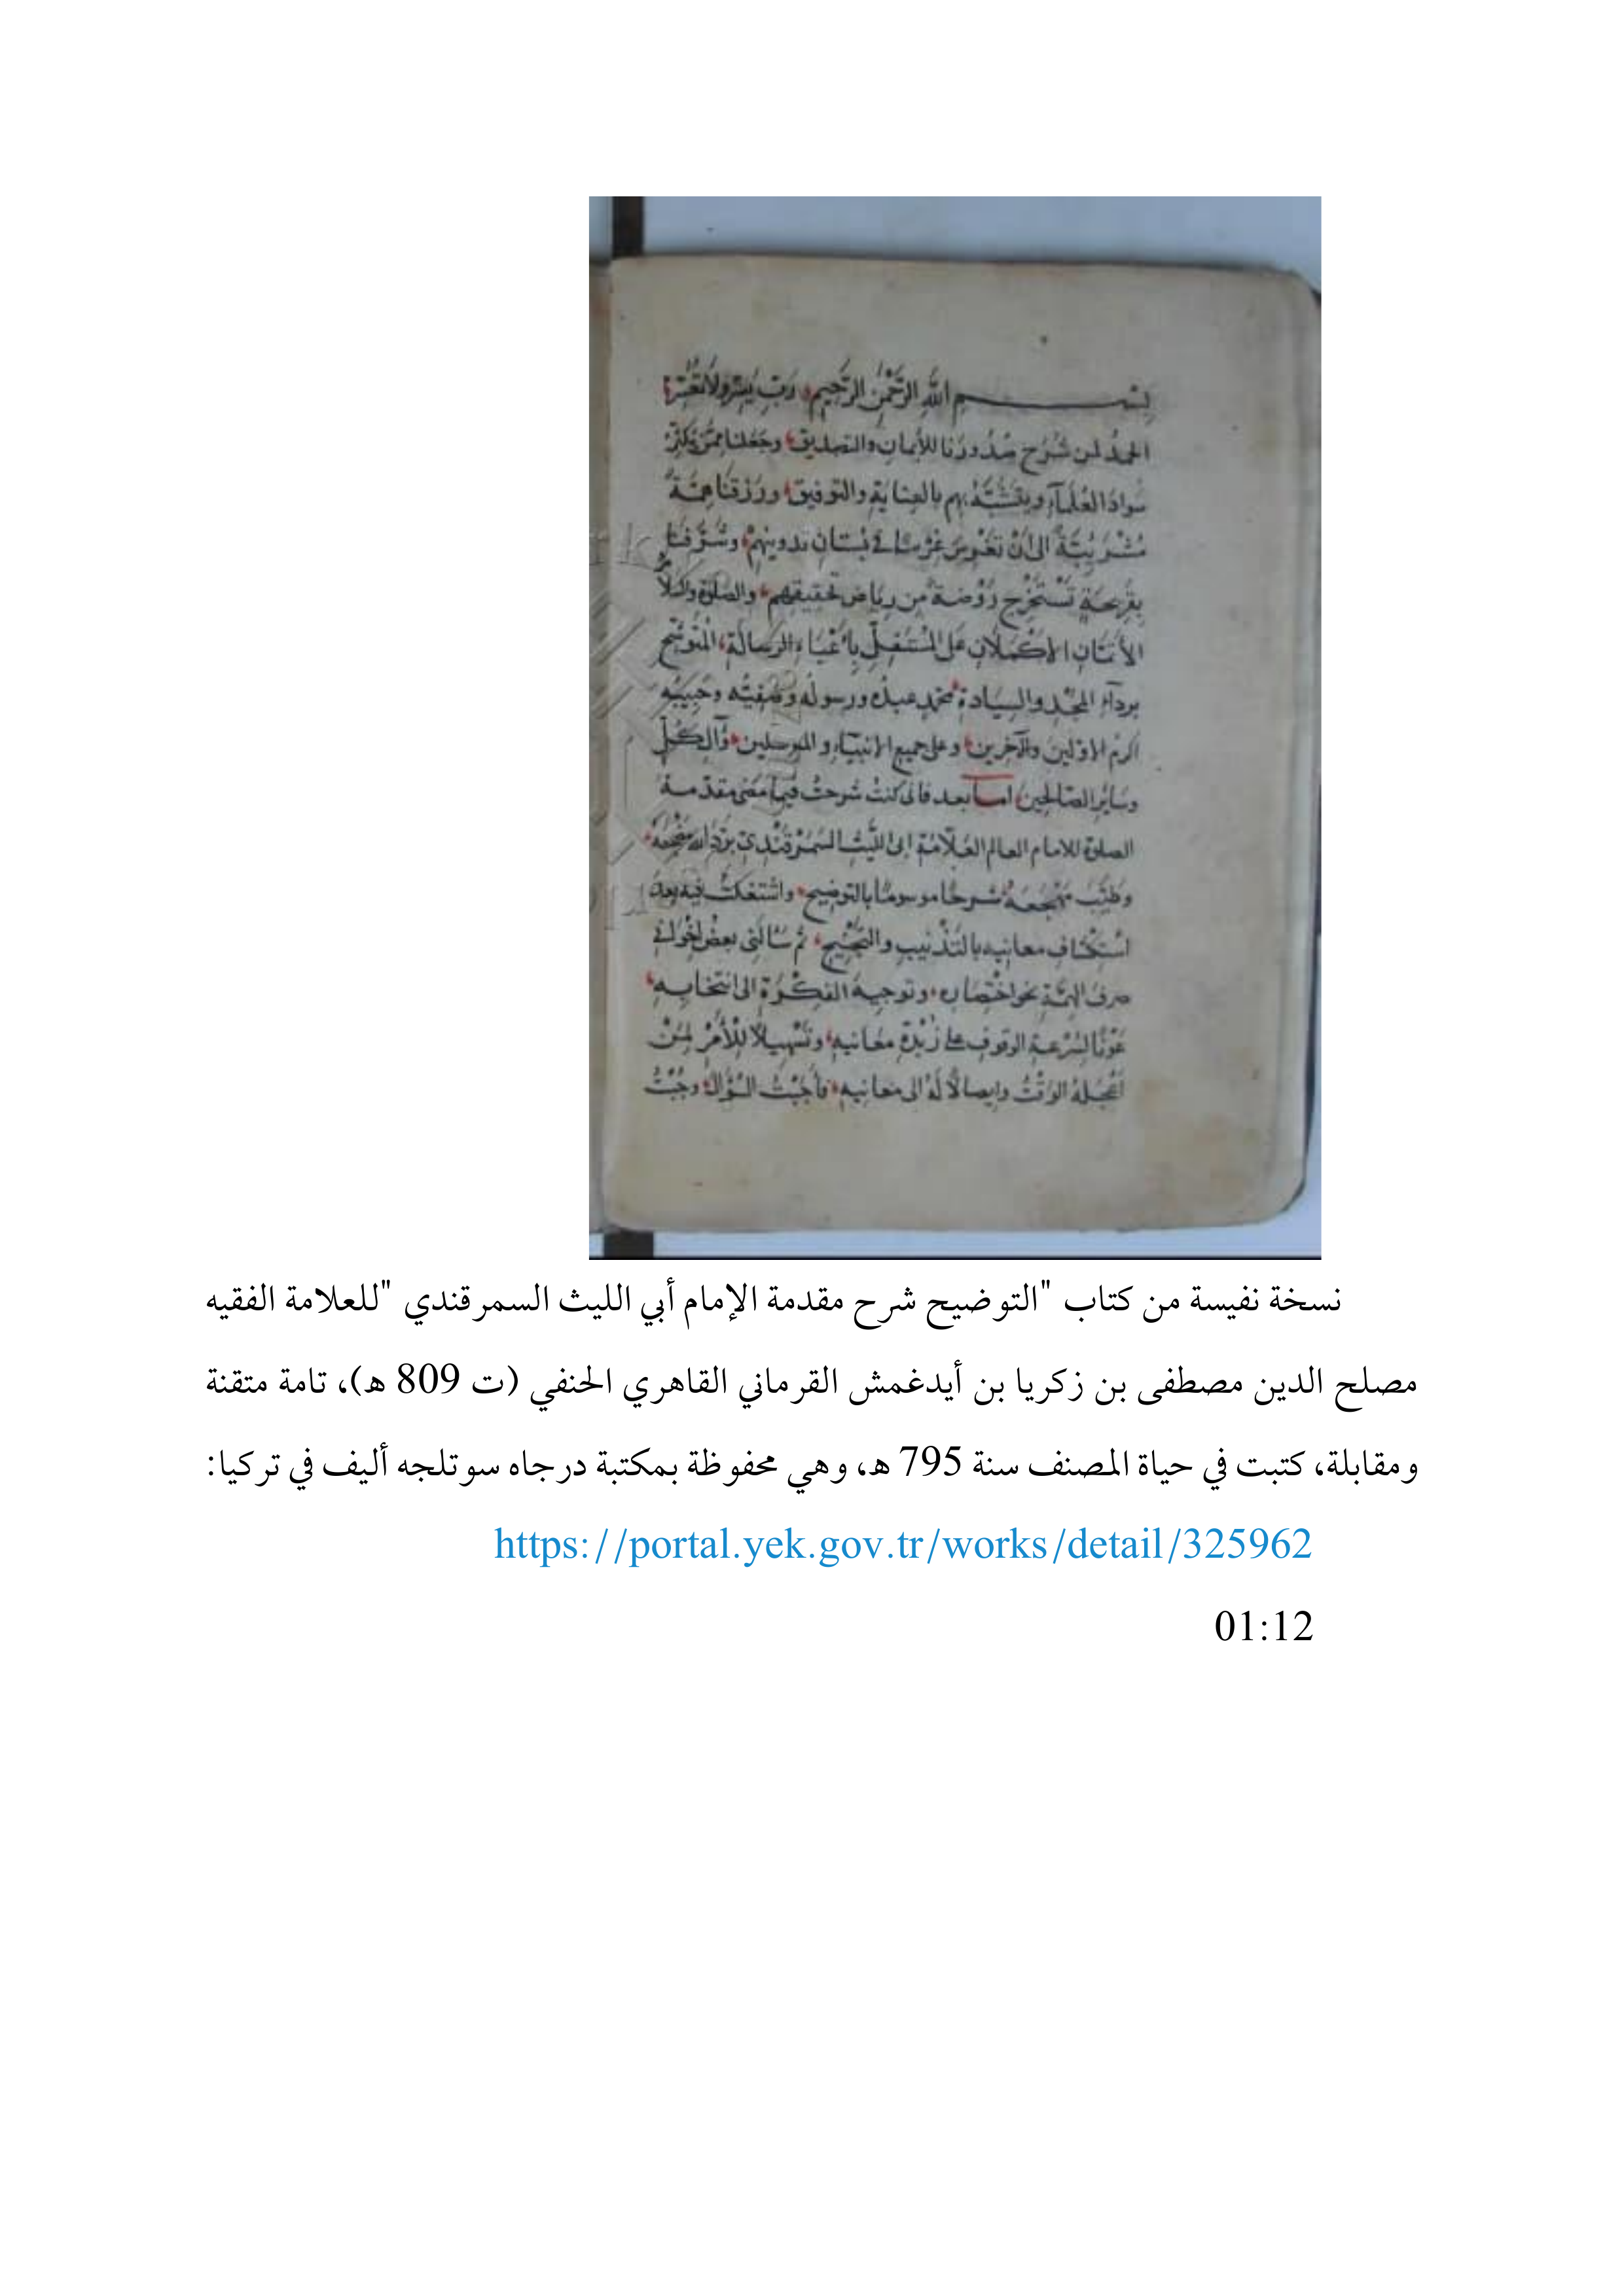 بسم الله الرَّحْمٰنِ الرَّحِيمِ رَبِّ يَسِّرْ وَلَا تُعَسِّرْ
الحمدُ لمن شَرَحَ صُدُورَنا للأيمان والتصديق وجَعَلنا ممَّن يُكثِّر
سوادَ العُلَمآءِ ويتشبَّهُ بهم بالعنايةِ والتوفيق ورَزقنا هِمَّةً
الى أنْ تَغْرِسَ غَرْسًا في بُسْتان تدوينهِمْ وشَرَّفَنا
بقَرِيحَةٍ تَسْتَخْرِجُ رَوْضَةً من رِيَاض تحقيقهم والصَّلوة والسَّلام
الأتَمَّانِ الأكْمَلَانِ على المُسْتَقِلِّ بِأَعْبَاءِ الرسالَةِ المُتَوَشِّحِ
بردآءِ المَجْدِ والسِيَادة محمّدٍ عبدِه ورسولِه وصَفِيِّه وحَبِيبِه
اكرم الاوّلين والآخِرين وعلى جميع الانبيآءِ والمرسلين وآلِ كُلٍّ
وسَايِرِ الصّالحين امّا بعد فانى كنتُ شرحتُ فيما مضى مقدّمة
الصلوة للامام العالم العَلّامَة ابى اللَّيْث السَمَرْقَنْدِيّ بَرَّدَ الله مَضْجَعَهُ
وطَيَّبَ مَهْجَعَهُ شرحًا موسومًا بالتوضيح فيه بعدَ
معانيه بالتَذْنِيبِ ثم سَألَنى بعضُ اخْوَانى
صرفَ الهِمَّةِ نحو اختِصَاره وتوجيهَ الفكْرَةِ الى انتخابه
عَوْنًا لسُرْعةِ الوقوف على زُبْدَةِ معانيه وتَسْهِيلًا للْأَمْرِ لمَنْ
اَعْجَلَهُ الوَقْتُ وايصالًا لَهُ الى معانيه فأجَبْتُ السُؤَالَ وجُبْتُ
نسخة نفيسة من كتاب "التوضيح شرح مقدمة الإمام أبي الليث السمرقندي "للعلامة الفقيه
مصلح الدين مصطفى بن زكريا بن أيدغمش القرماني القاهري الحنفي (ت 809 هـ)، تامة متقنة
ومقابلة، كتبت في حياة المصنف سنة 795 هـ، وهي محفوظة بمكتبة درجاه سوتلجه أليف في تركيا:
https://portal.yek.gov.tr/works/detail/325962
01:12